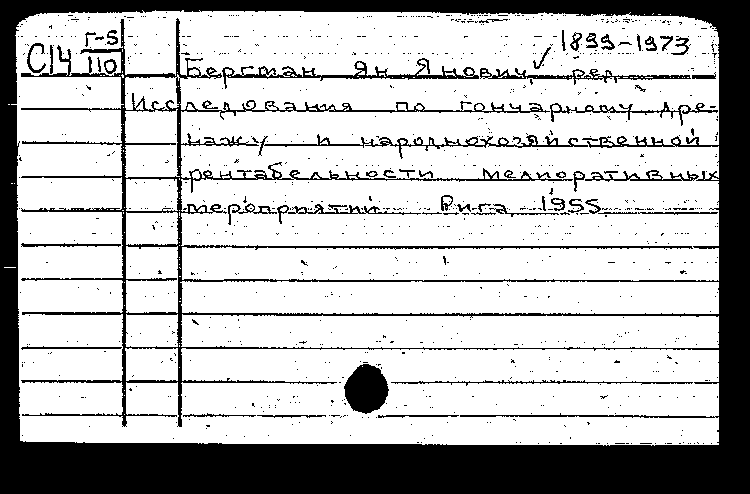 1899-1973
С14 Г-5/110 Бергман, Ян Янович, ред.
Исследования по гончарному дре-
нажу и народнохозяйственной
рентабельности мелиоративных
мероприятий. Рига, 1955.